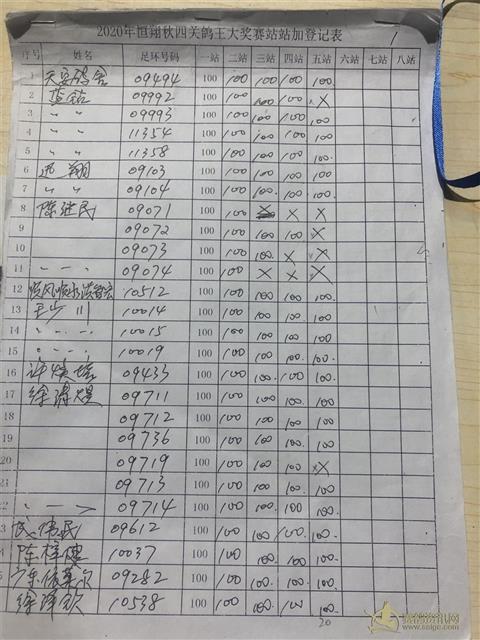 2020年恒翔秋四关鸽王大奖赛站站加登记表
序号 姓名 足环号码 一站 二站 三站 四站 五站 六站 七站 八站
1 天安鸽舍 09494 100 100 100 100 100
2 蓝钻 09992 100 100 100 100 X
3 〃 〃 09993 100 100 100 100 100
4 〃 〃 11354 100 100 100 100 100
5 〃 〃 11358 100 100 100 100 100
6 迅翔 09103 100 100 100 100 100
7 〃 〃 09104 100 100 100 100 100
8 陈进民 09071 100 100 X X X
9 09072 100 100 100 100 X
10 09073 100 100 100 X X
11 09074 100 100 X X X
12 顺风顺水 10512 100 100 100 100 100
13 王少川 10014 100 100 100 100 100
14 10015 100 100 100 100 100
15 10019 100 100 100 100 100
16 09433 100 100 100 100 100
17 09711 100 100 100 100 100
18 09712 100 100 100 100 100
19 09736 100 100 100 100 100
20 09719 100 100 100 100 X
21 09713 100 100 100 100 100
2 09714 100 100 100 100 100
3 伟民 09612 100 100 100 100 100
4 10037 100 100 100 100 100
5 09282 100 100 100 100 100
10538 100 100 100 100 100
20
赛鸽资讯网
www.saige.com